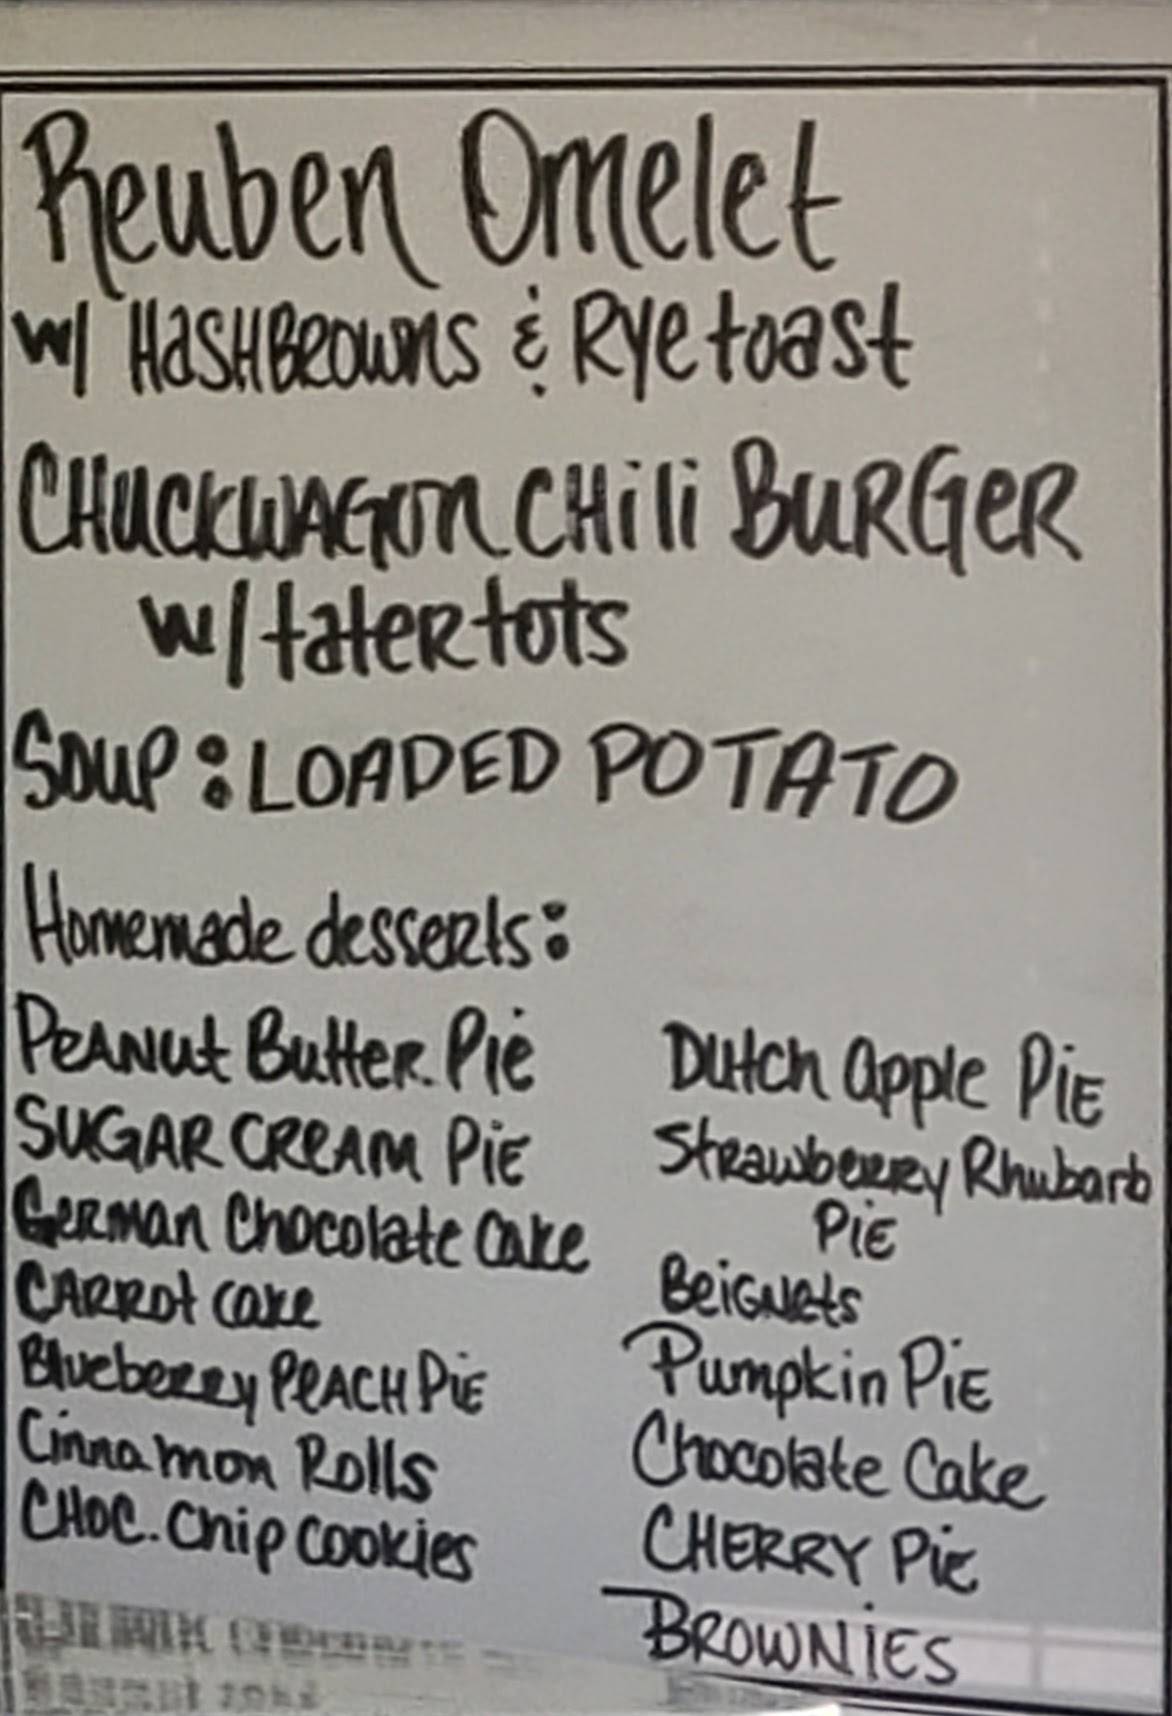 Reuben Omelet
w/ HasHBROWNS & RYe toast
CHUCKWAGON CHili BURGER
w/ tateR tots
SOUP: LOADED POTATO
Homemade desseRts:
PEANUt ButteR Pie
SUGAR CREAM PiE
GeRman Chocolate Cake
CARROt cake
BlueberRy PEACH PiE
Cinnamon Rolls
CHOC. Chip cookies
DUtch apple PiE
StRawbeRRy Rhubarb
PiE
BeiGNets
Pumpkin PiE
Chocolate Cake
CHERRY PiE
BROWNiES